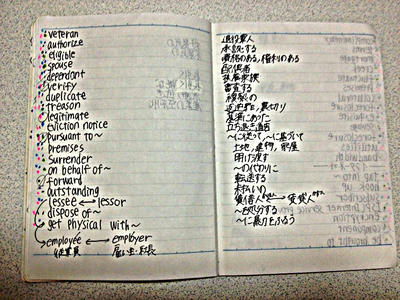 veteran
authorize
eligible
spouse
dependant
verify
duplicate
treason
legitimate
eviction notice
pursuant to~
premises
surrender
on behalf of~
forward
outstanding
lessee ↔ lessor
dispose of~
get physical with~
employee ↔ employer
従業員 雇い主・社長
退役軍人
資格のある、権利のある
配偶者
扶養家族
審査する
複製の
立ち退き通告
~に従って、~に基づいて
土地、建物、家屋
明け渡す
~の代わりに
転送する
未払いの
賃借人 ↔ 賃貸人
~を処分する
~に暴力をふるう